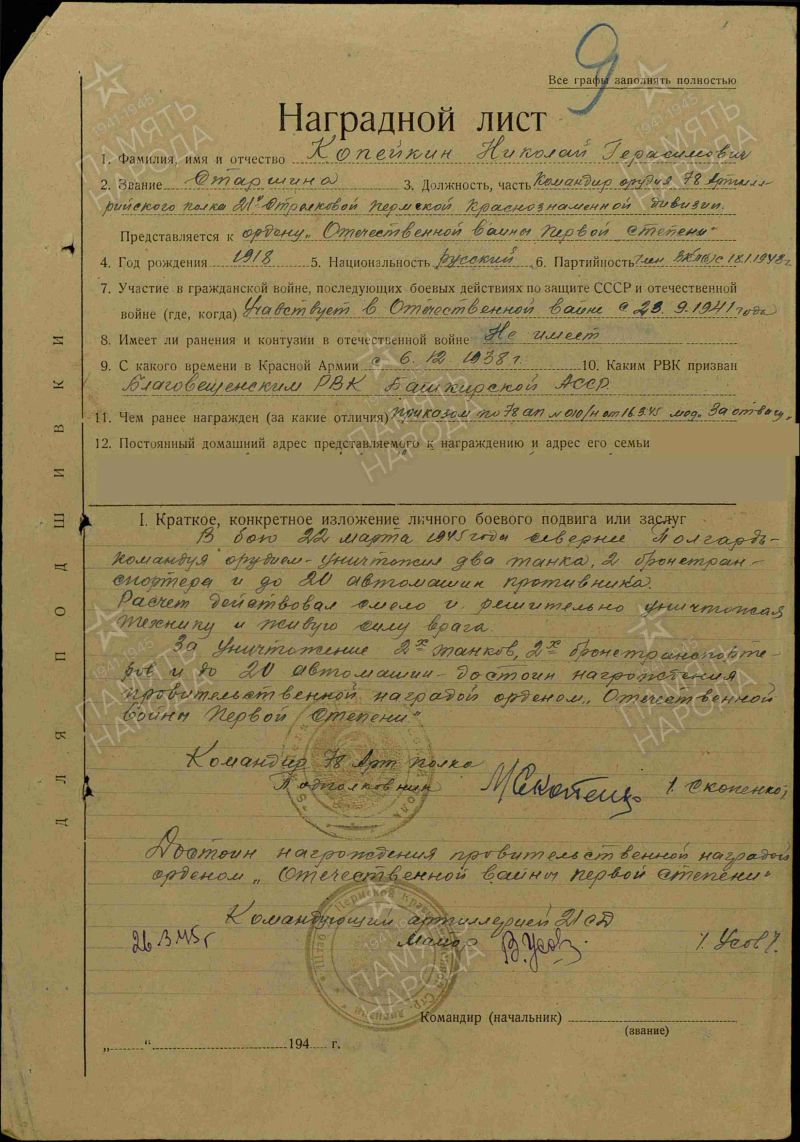 9
Все графы заполнять полностью
Наградной лист
1. Фамилия, имя и отчество Копейкин Николай Герасимович
2. Звание Старшина 3. Должность, часть Командир орудия 78 Артилле-
рийского полка 21й Стрелковой Пермской Краснознаменной дивизии.
Представляется к ордену „Отечественной войны Первой степени"
4. Год рождения 1918 5. Национальность русский 6. Партийность член ВКП(б) с
7. Участие в гражданской войне, последующих боевых действиях по защите СССР и отечественной
войне (где, когда) Учавствует в Отечественной войне с 23.9.1941 года
8. Имеет ли ранения и контузии в отечественной войне Не имеет
9. С какого времени в Красной Армии с 6.12.1938 г. 10. Каким РВК призван
Благовещенским РВК Башкирской АССР
11. Чем ранее награжден (за какие отличия) Приказом по 78 ап № 010/н от 16.3.45 мед. За отвагу"
12. Постоянный домашний адрес представляемого к награждению и адрес его семьи
I. Краткое, конкретное изложение личного боевого подвига или заслуг
В бою 22 марта 1945 года севернее Полгардь-
командуя орудием- уничтожил два танка, 2 бронетран-
спортера и до 20 автомашин противника.
Расчет действовал смело и решительно уничтожая
технику и живую силу врага.
За уничтожение 2х танков, 2х бронетранспорте-
ров и до 20 автомашин- достоин награждения
правительственной наградой орденом „Отечественной
войны Первой Степени"
Командир 78 Арт полка
Подполковник /Скопенко/
Достоин награждения правительственной наградой
орденом „Отечественной войны первой степени"
Командующий артиллерией 21 сд
26.3.45 г Майор В.Усов /Усов/.
Командир (начальник)
(звание)
„ " 194 г.
ДЛЯ ПОДШИВКИ
ПАМЯТЬ НАРОДА
1941-1945